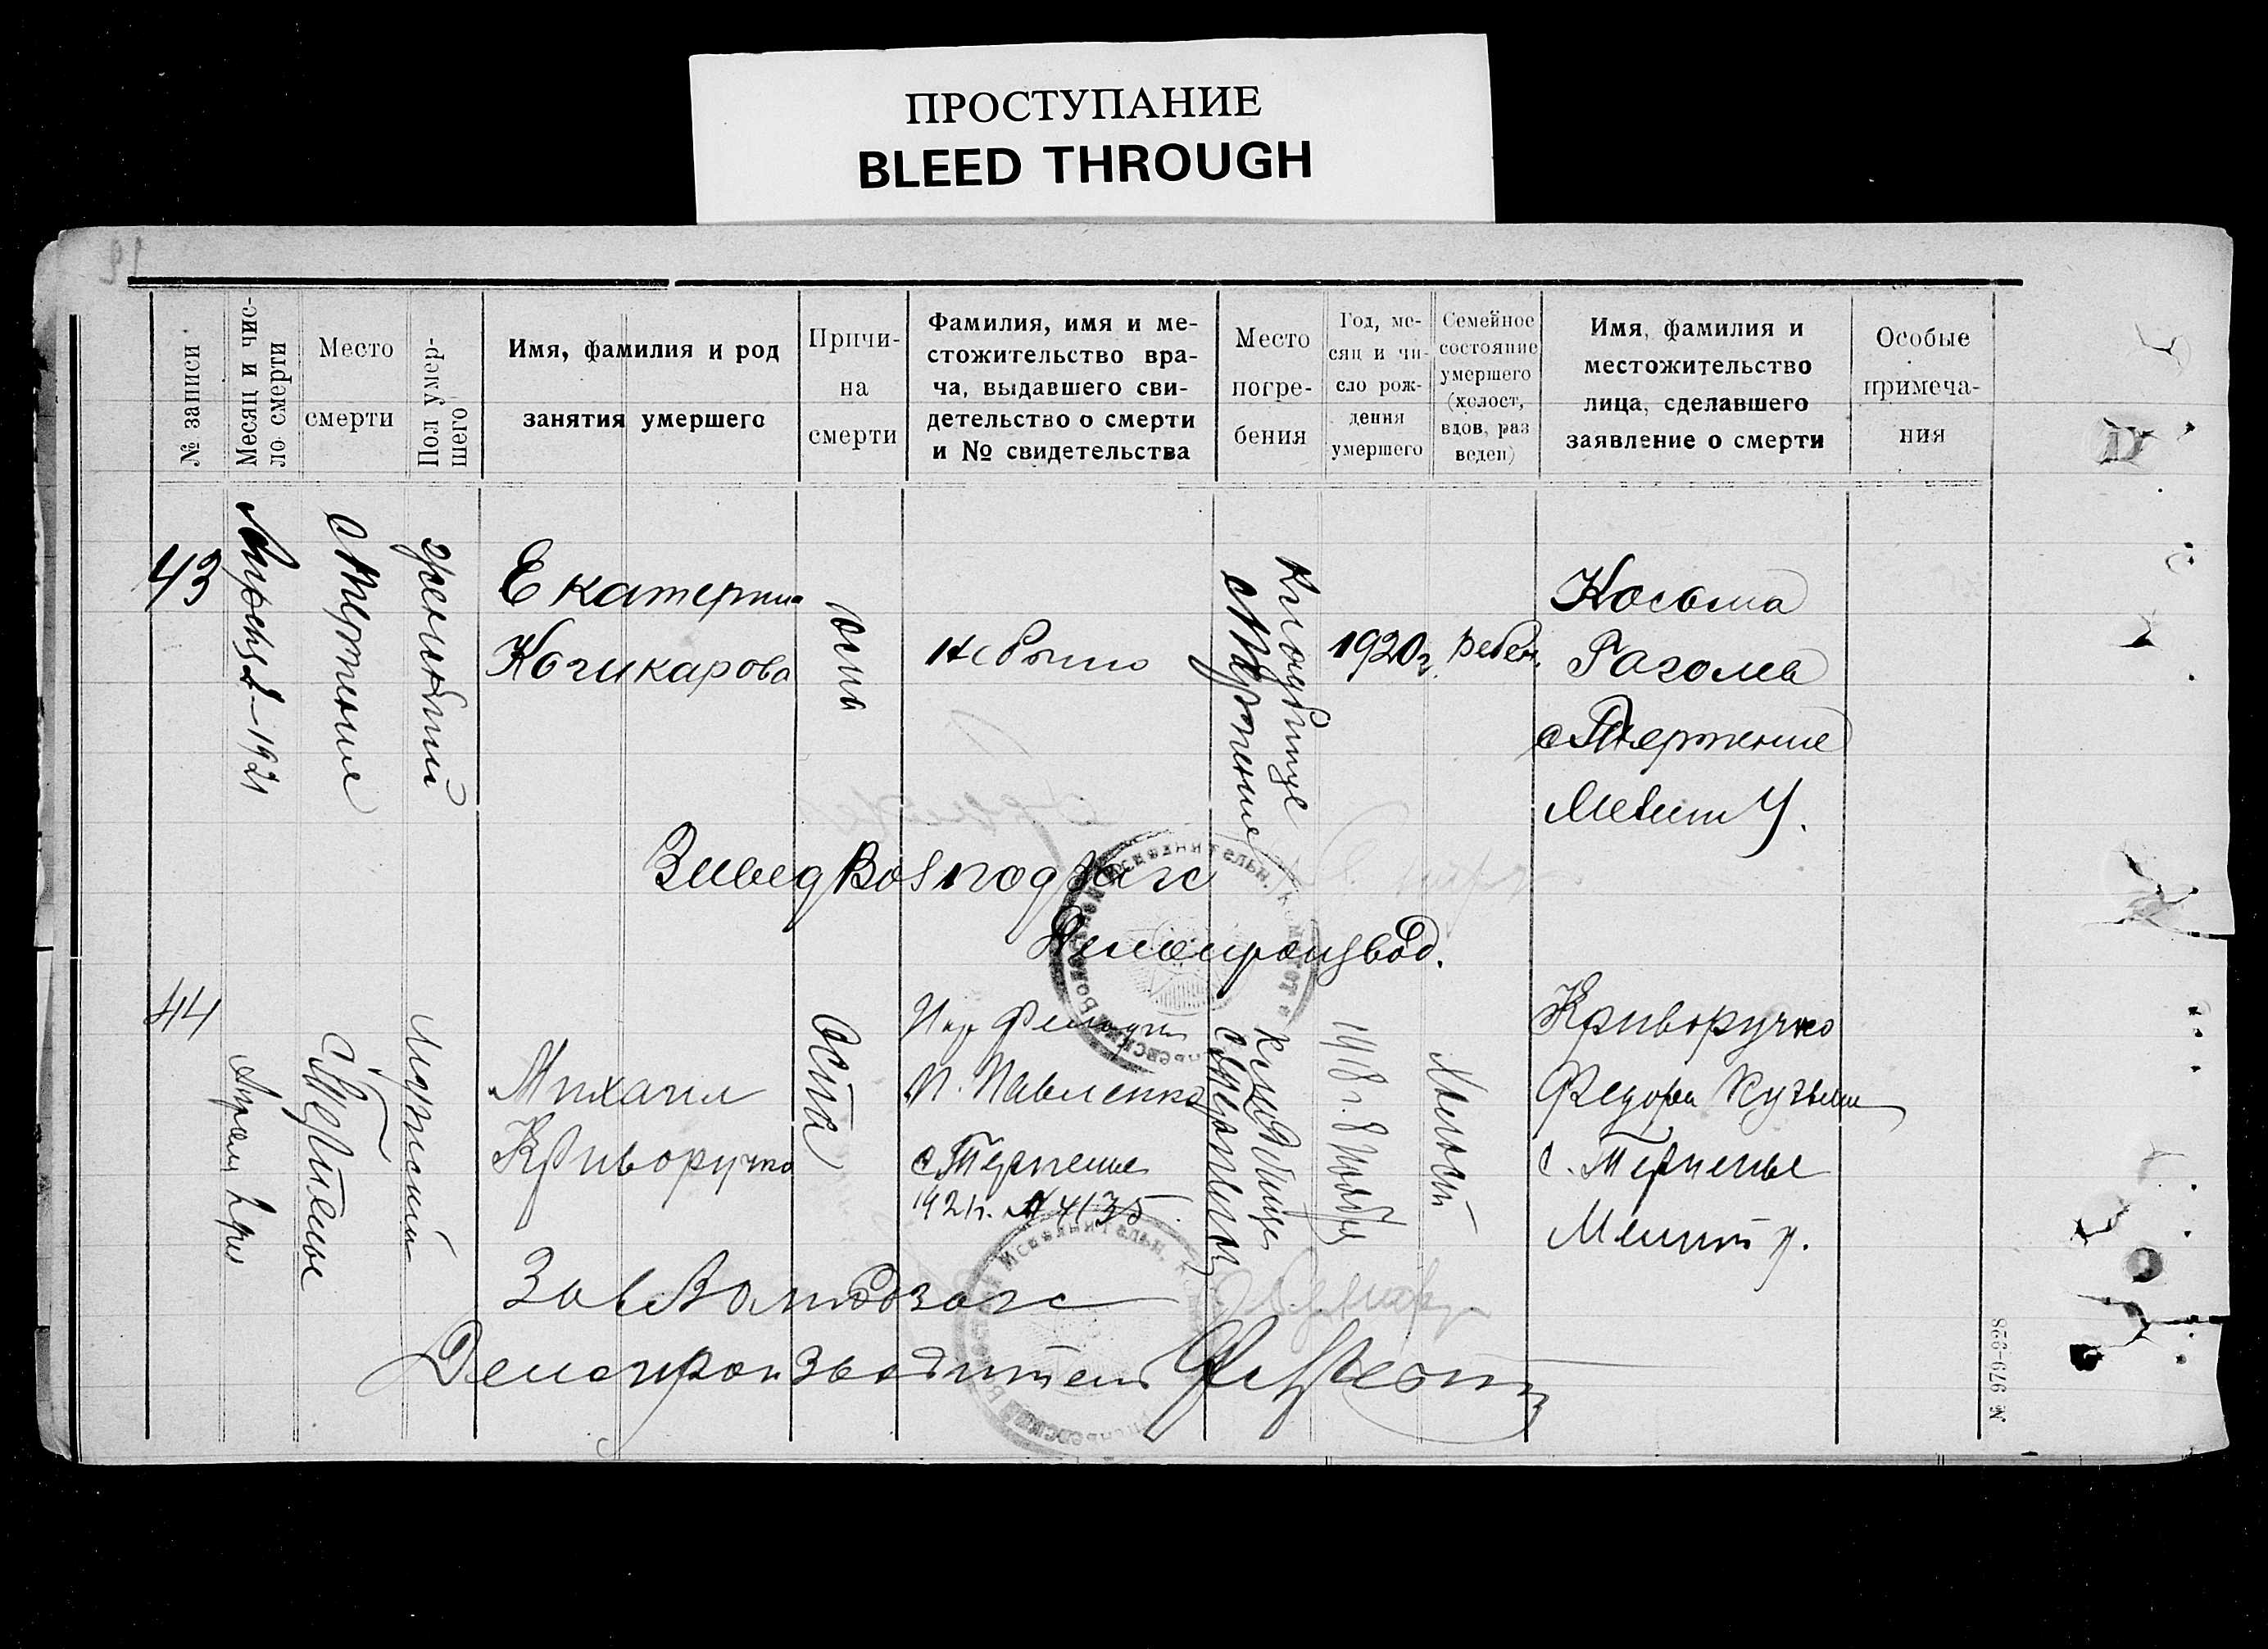 ПРОСТУПАНИЕ
BLEED THROUGH
№ записи
Месяц и чис-
ло смерти
Место
смерти
Пол умер-
шего
Имя, фамилия и род
занятия умершего
Причи-
на
смерти
Фамилия, имя и ме-
стожительство вра-
ча, выдавшего сви-
детельство о смерти
и № свидетельства
Место
погре-
бения
Год, ме-
сяц и чи-
сло рож-
дения
умершего
Семейное
состояние
умершего
(холост,
вдов, раз
веден)
Имя, фамилия и
местожительство
лица, сделавшего
заявление о смерти
Особые
примеча-
ния
43
1921
с Терпение
женский
Екатерина
Кочикарова
Оспа
Не было
Кладбище
с Терпение
1920 г.
Ребен.
Косома
Рагома
с Терпение
Мелит У.
Делопроизвод.
44
с. Терпенье
Мужский
Михаил
Криворучко
Оспа
П. Павленко
с. Терпение
1921 г. № 4135
Кладбище
1918 г. 8 Ноября
Холост
Криворучко
Федора Кузьми
с. Терпенье
Мелит у.
Зав Волподзагс
Делопроизводитель
№ 976-928